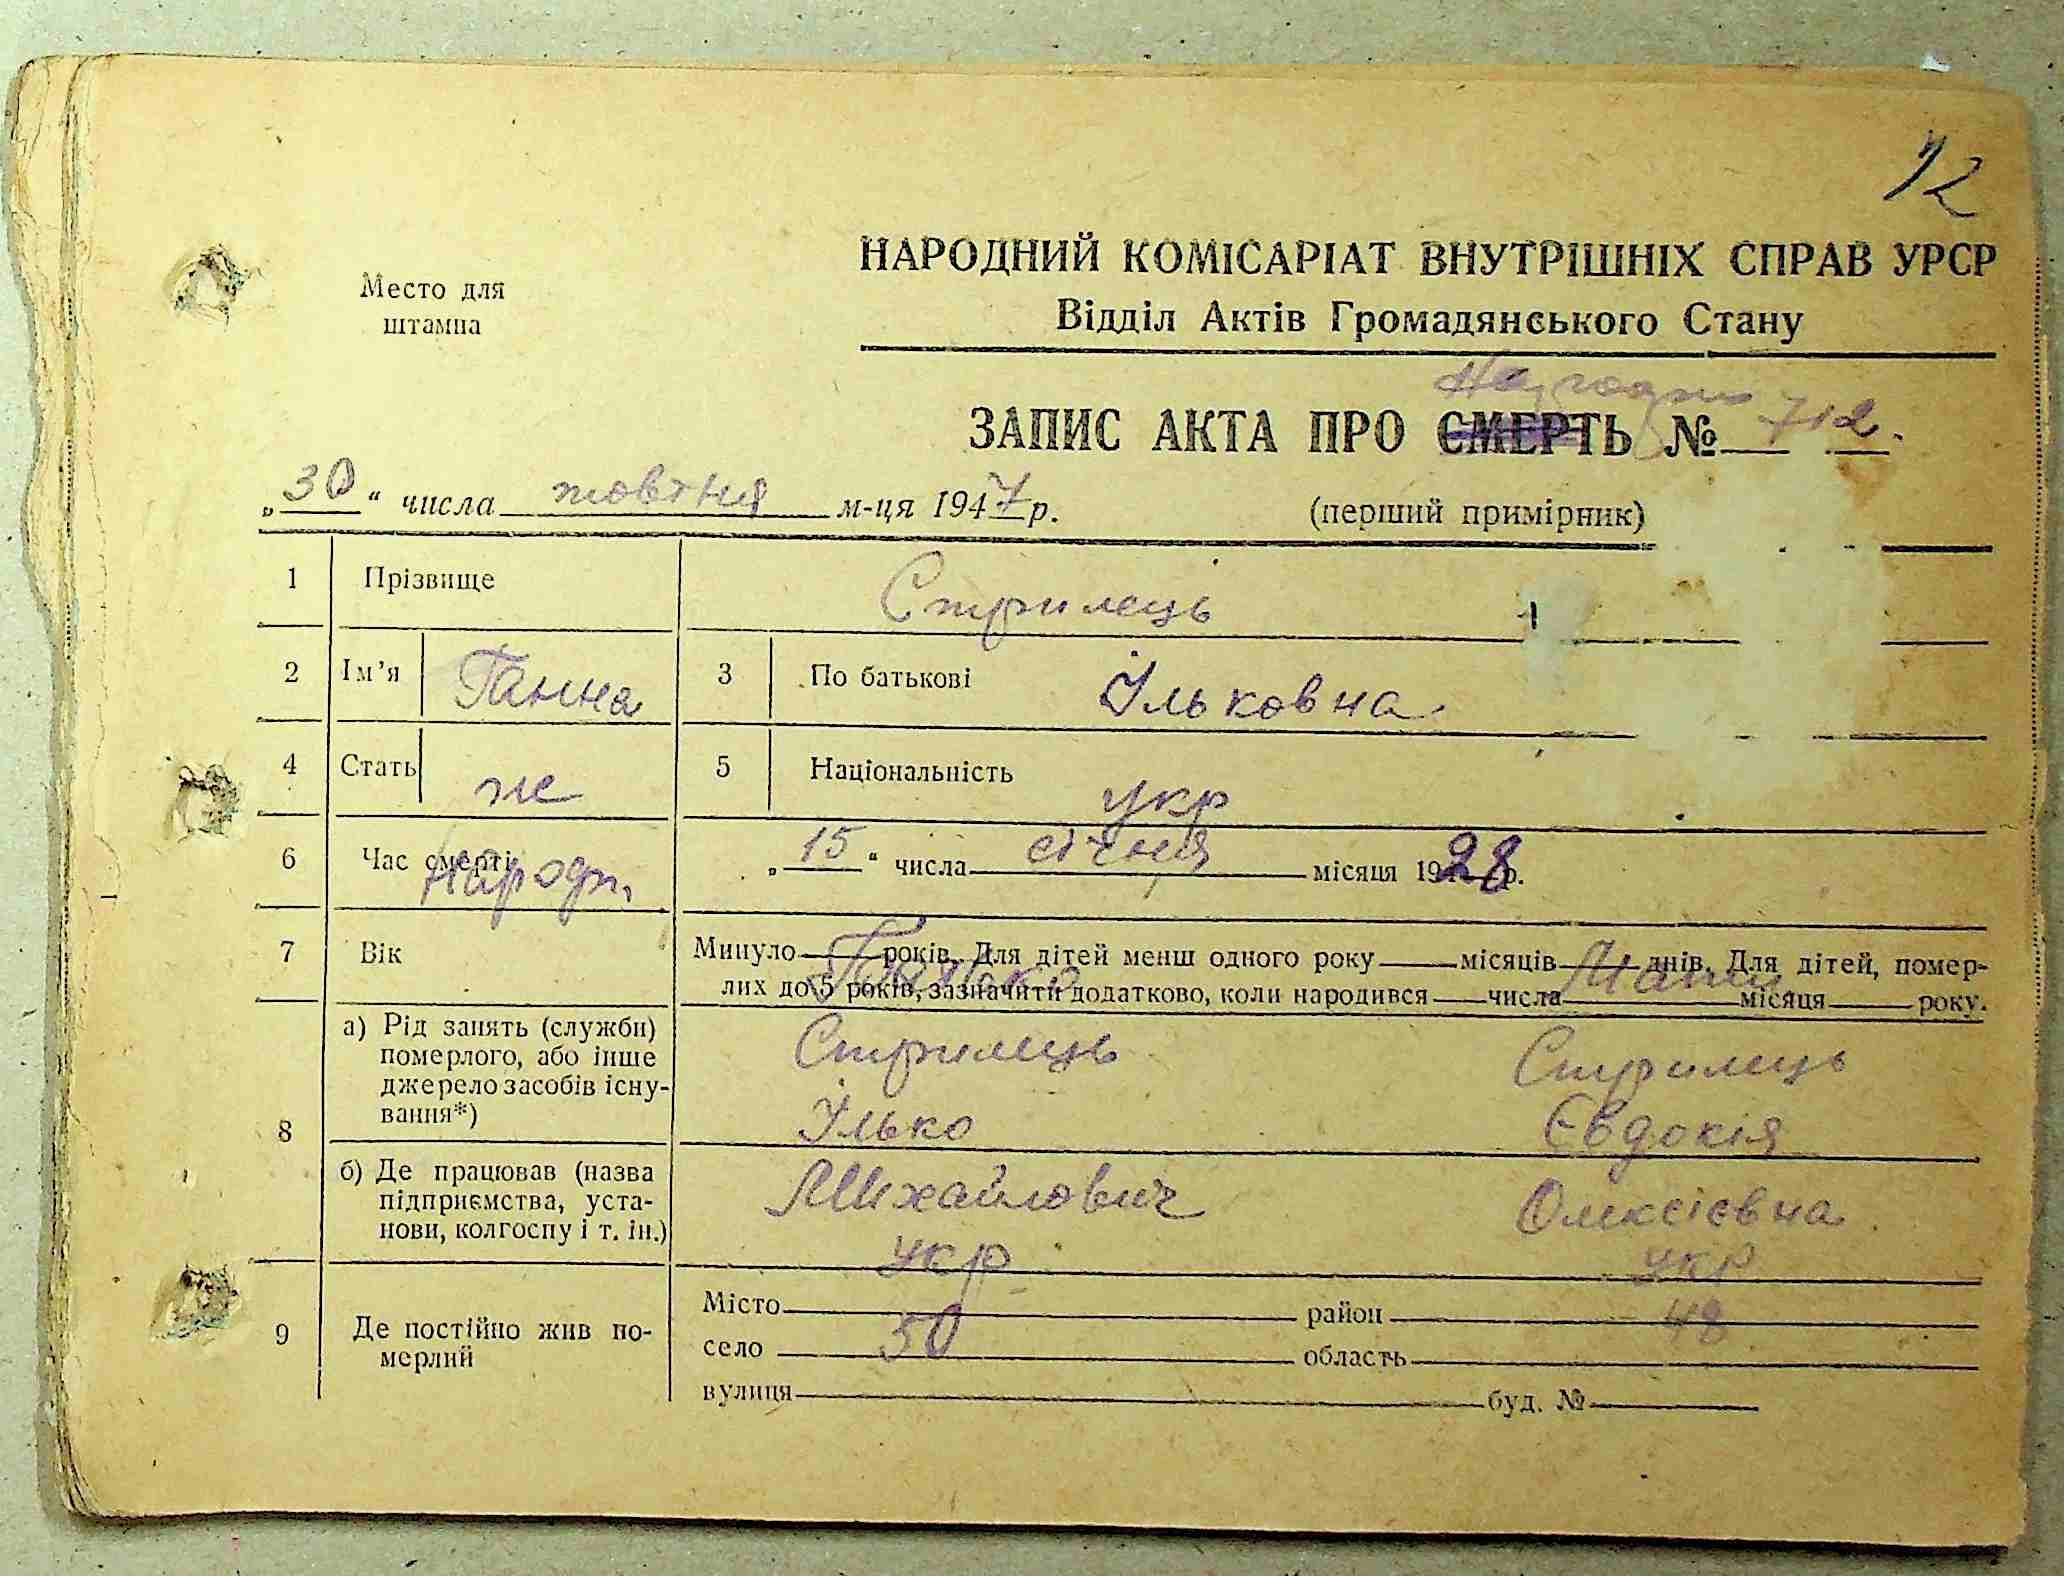 12
НАРОДНИЙ КОМІСАРІАТ ВНУТРІШНІХ СПРАВ УРСР
Відділ Актів Громадянського Стану
Место для
штампа
ЗАПИС АКТА ПРО СМЕРТЬ № 712.
„30“ числа жовтня м-ця 1947 р.
(перший примірник)
1 Прізвище Стрилець
2 Ім’я Ганна 3 По батькові Ільковна
4 Стать же 5 Національність укр
6 Час смерті народж. „15“ числа січня місяця 1928 р.
7 Вік Минуло років. Для дітей менш одного року місяців днів. Для дітей, помер-
лих до 5 років, зазначити додатково, коли народився числа місяця року.
Батько Мати
8 а) Рід занять (служби)
померлого, або інше
джерело засобів існу-
вання*)
Стрилець Стрилець
Ілько Євдокія
б) Де працював (назва
підприємства, уста-
нови, колгоспу і т. ін.)
Михайлович Олексієвна
укр укр
50 48
9 Де постійно жив по-
мерлий
Місто район
село область
вулиця буд. №